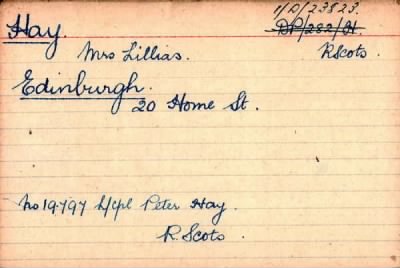 Hay.
1/D/23823.
DP/282/H
Mrs Lillias.
R Scots.
Edinburgh.
20 Home St.
No 19797 L/cpl Peter Hay.
R. Scots.